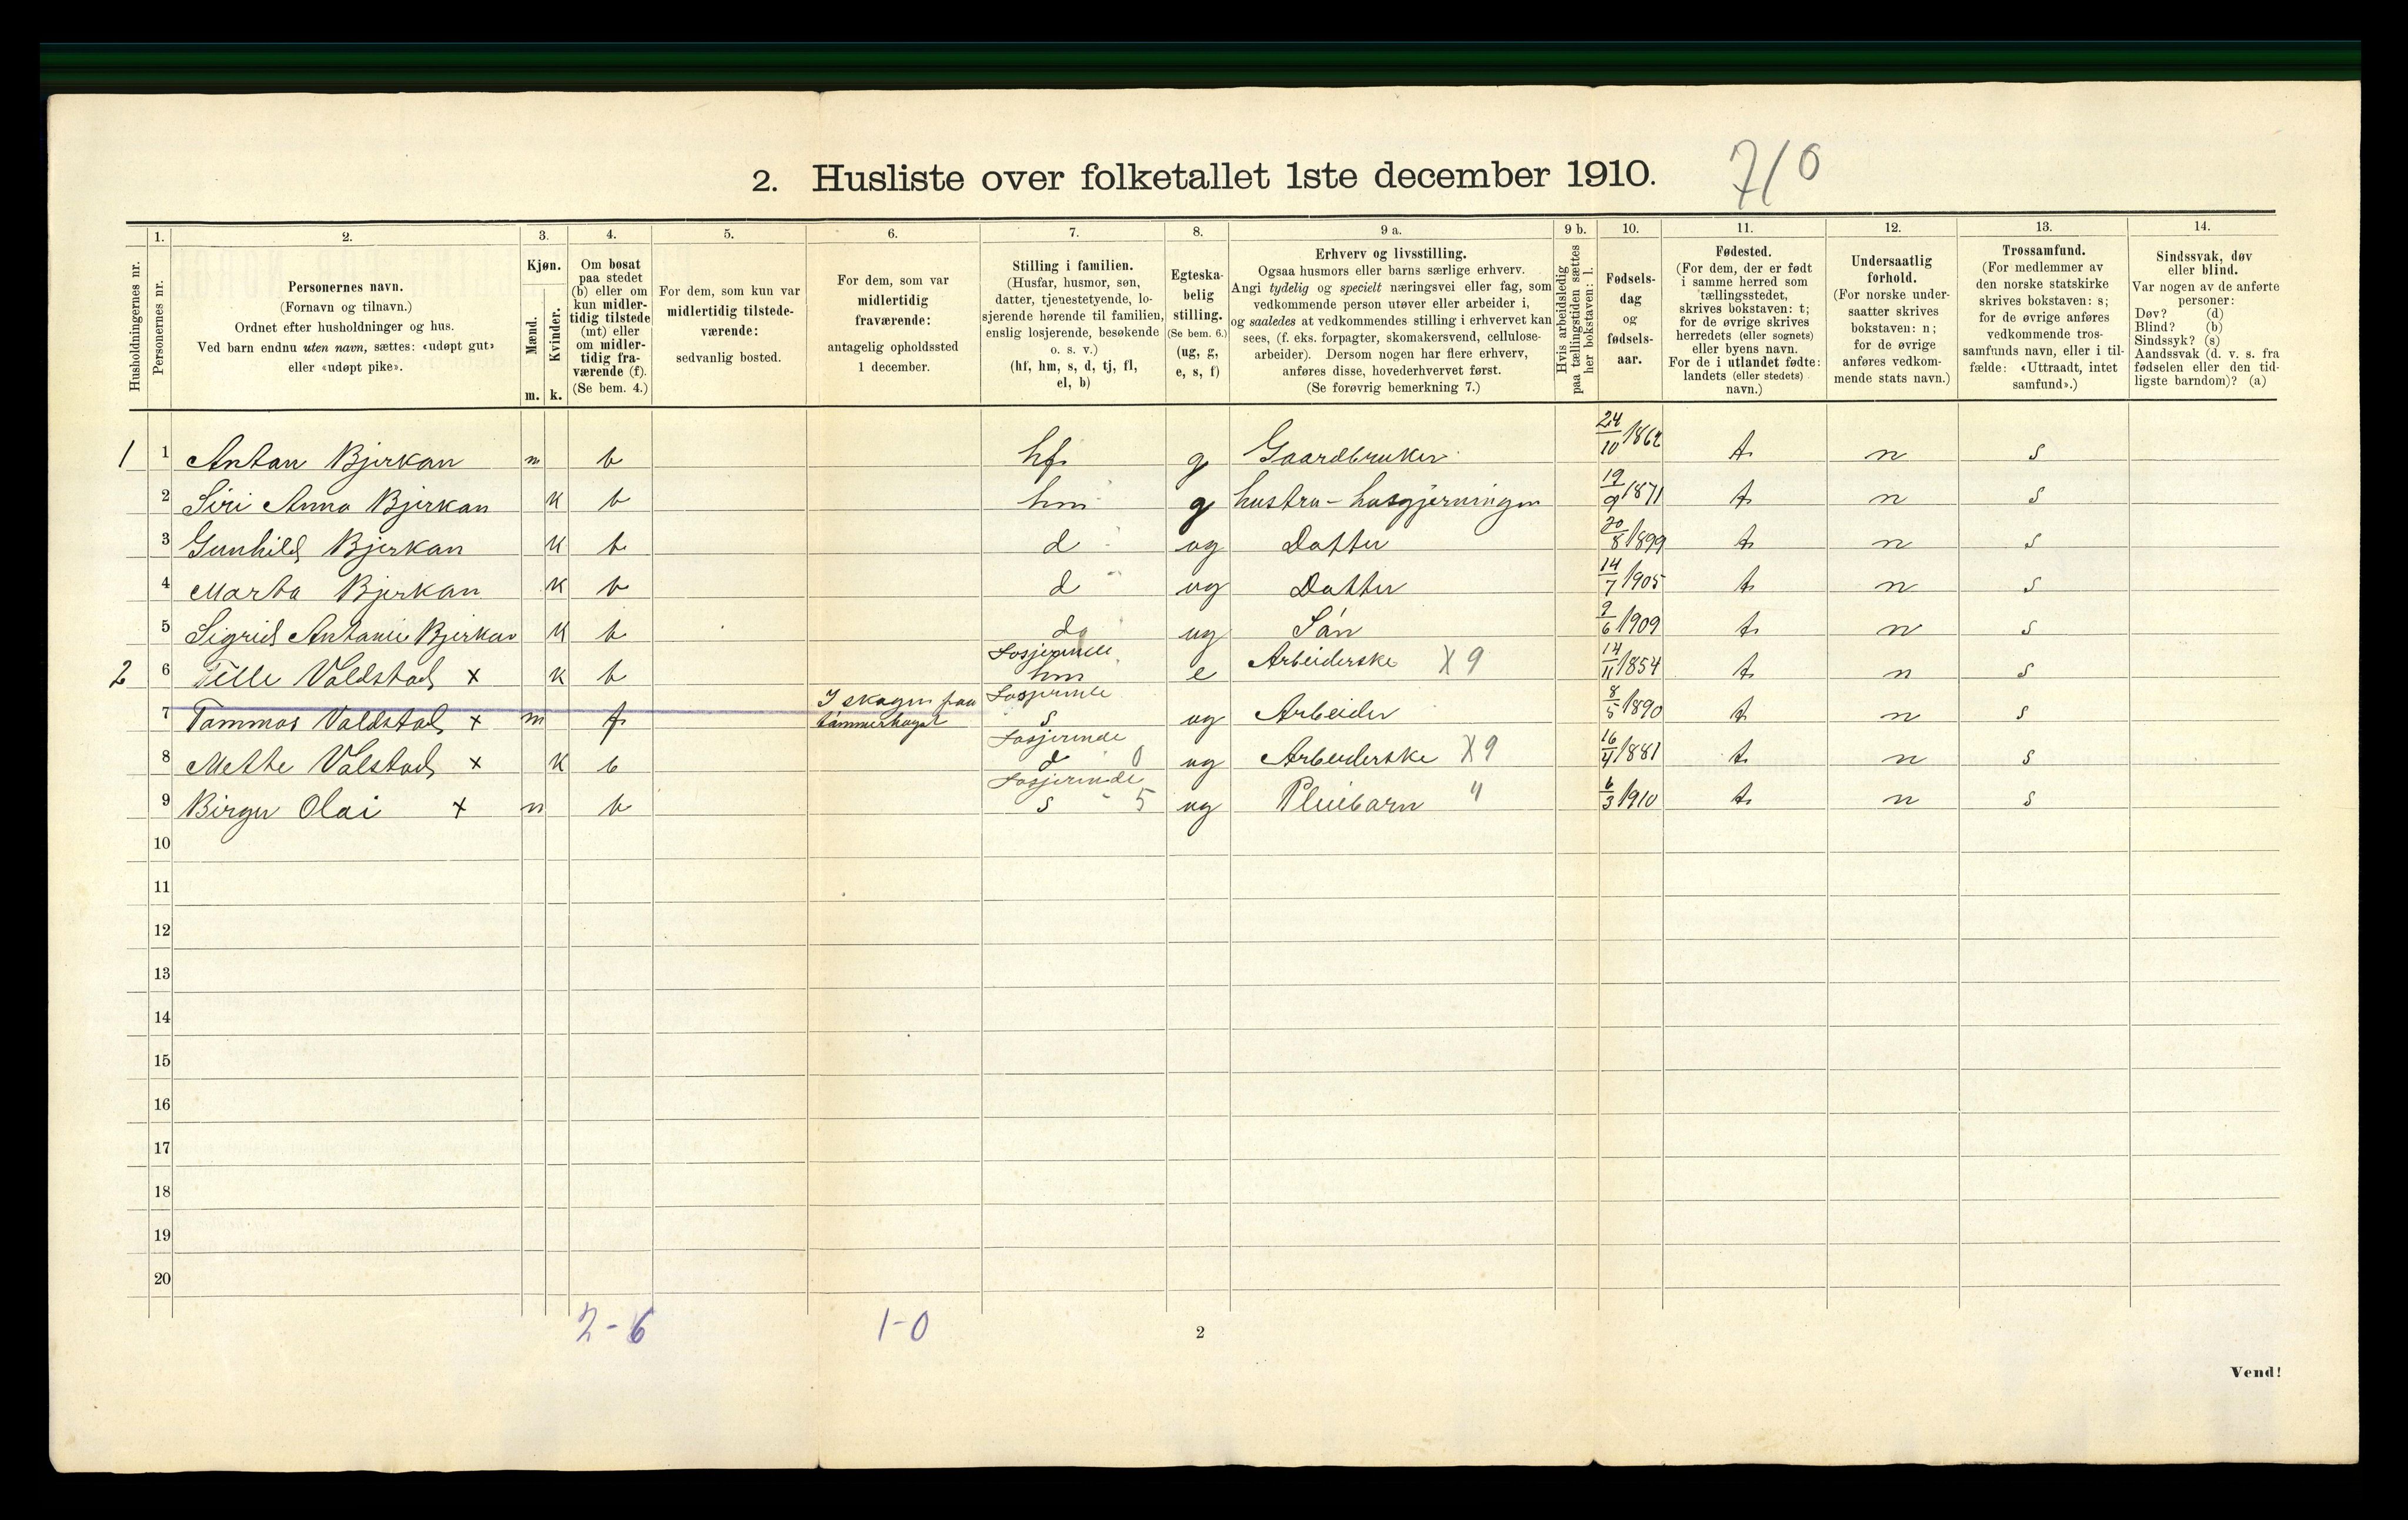 2. Husliste over folketallet 1ste december 1910. 710
Husholdningernes nr.
1.
Personernes nr.
2.
Personernes navn.
(Fornavn og tilnavn.)
Ordnet efter husholdninger og hus.
Ved barn endnu uten navn, sættes: «udøpt gut»
eller «udøpt pike».
3.
Kjøn.
Mænd.
Kvinder.
m. k.
4.
Om bosat
paa stedet
(b) eller om
kun midler-
tidig tilstede
(mt) eller
om midler-
tidig fra-
værende (f).
(Se bem. 4.)
5.
For dem, som kun var
midlertidig tilstede-
værende:
sedvanlig bosted.
6.
For dem, som var
midlertidig
fraværende:
antagelig opholdssted
1 december.
7.
Stilling i familien.
(Husfar, husmor, søn,
datter, tjenestetyende, lo-
sjerende hørende til familien,
enslig losjerende, besøkende
o. s. v.)
(hf, hm, s, d, tj, fl,
el, b)
8.
Egteska-
belig
stilling.
(Se bem. 6.)
(ug, g,
e, s, f)
9 a.
Erhverv og livsstilling.
Ogsaa husmors eller barns særlige erhverv.
Angi tydelig og specielt næringsvei eller fag, som
vedkommende person utøver eller arbeider i,
og saaledes at vedkommendes stilling i erhvervet kan
sees, (f. eks. forpagter, skomakersvend, cellulose-
arbeider). Dersom nogen har flere erhverv,
anføres disse, hovederhvervet først.
(Se forøvrig bemerkning 7.)
9 b.
Hvis arbeidsledig
paa tællingstiden sættes
her bokstaven: l.
10.
Fødsels-
dag
og
fødsels-
aar.
11.
Fødested.
(For dem, der er født
i samme herred som
tællingsstedet,
skrives bokstaven: t;
for de øvrige skrives
herredets (eller sognets)
eller byens navn.
For de i utlandet fødte:
landets (eller stedets)
navn.)
12.
Undersaatlig
forhold.
(For norske under-
saatter skrives
bokstaven: n;
for de øvrige
anføres vedkom-
mende stats navn.)
13.
Trossamfund.
(For medlemmer av
den norske statskirke
skrives bokstaven: s;
for de øvrige anføres
vedkommende tros-
samfunds navn, eller i til-
fælde: «Uttraadt, intet
samfund».)
14.
Sindssvak, døv
eller blind.
Var nogen av de anførte
personer:
Døv? (d)
Blind? (b)
Sindssyk? (s)
Aandssvak (d. v. s. fra
fødselen eller den tid-
ligste barndom)? (a)
1 1 Antan Bjerkan m b hf g Gaardbruker 24/10 1862 t n s
2 Siri Anna Bjerkan k b hm g hustru - husgjerningen 19/9 1871 t n s
3 Gunhild Bjerkan k b d ug Datter 20/8 1899 t n s
4 Marta Bjerkan k b d ug Datter 14/7 1905 t n s
5 Sigrid Antanie Bjerkan k b d ug 9/6 1909 t n s
Losjerende
2 6 Valdstad x k b hm e Arbeiderske X9 14/11 1854 t n s
I skogen paa Losjerende
7 Tammas Valdstad x m f tømmerhogst s ug Arbeider 8/5 1890 t n s
Losjerende
8 Mette Valstad x k b d 0 ug Arbeiderske X9 16/4 1881 t n s
Losjerende
9 Birger Olai x m b s - 5 ug Pleiebarn " 6/3 1910 t n s
10
11
12
13
14
15
16
17
18
19
20
2-6 1-0
2
Vend!